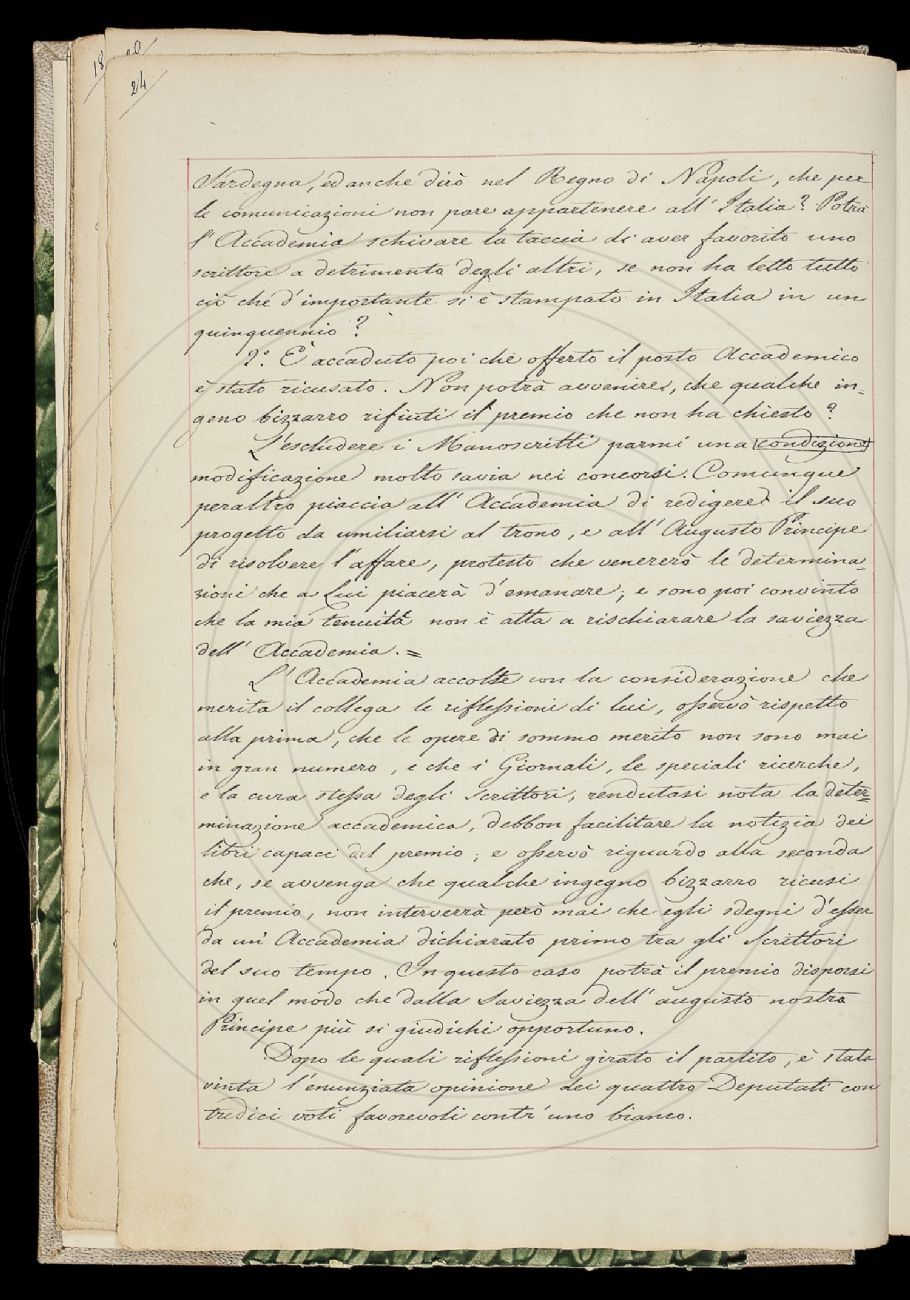 18 20
24
Sardegna, ed anche dirò nel Regno di Napoli, che per
le comunicazioni non pare appartenere all'Italia? Potrà
l'Accademia schivare la taccia di aver favorito uno
scrittore a detrimento degli altri, se non ha letto tutto
ciò che d'importante si è stampato in Italia in un
quinquennio?
2.° È accaduto poi che offerto il posto Accademico
è stato ricusato. Non potrà avvenire, che qualche in-
gegno bizzarro rifiuti il premio che non ha chiesto?
L'escludere i Manoscritti parmi una condizione
modificazione molto savia nei concorsi. Comunque
peraltro piaccia all'Accademia di redigere il suo
progetto da umiliarsi al trono, e all'Augusto Principe
di risolvere l'affare, protesto che venererò le determina-
zioni che a Lui piacerà d'emanare; e sono poi convinto
che la mia tenuità non è atta a rischiarare la saviezza
dell'Accademia. =
L'Accademia accolte con la considerazione che
merita il collega le riflessioni di lui, osservò rispetto
alla prima, che le opere di sommo merito non sono mai
in gran numero, e che i Giornali, le speciali ricerche,
e la cura stessa degli Scrittori, rendutasi nota la deter=
minazione accademica, debbon facilitare la notizia dei
libri capaci del premio; e osservò riguardo alla seconda
che, se avvenga che qualche ingegno bizzarro ricusi
il premio, non interverrà però mai che egli sdegni d'esser
da un'Accademia dichiarato primo tra gli Scrittori
del suo tempo. In questo caso potrà il premio disporsi
in quel modo che dalla Saviezza dell'augusto nostro
Principe più si giudichi opportuno.
Dopo le quali riflessioni girato il partito, è stata
vinta l'enunziata opinione dei quattro Deputati con
tredici voti favorevoli contr'uno bianco.